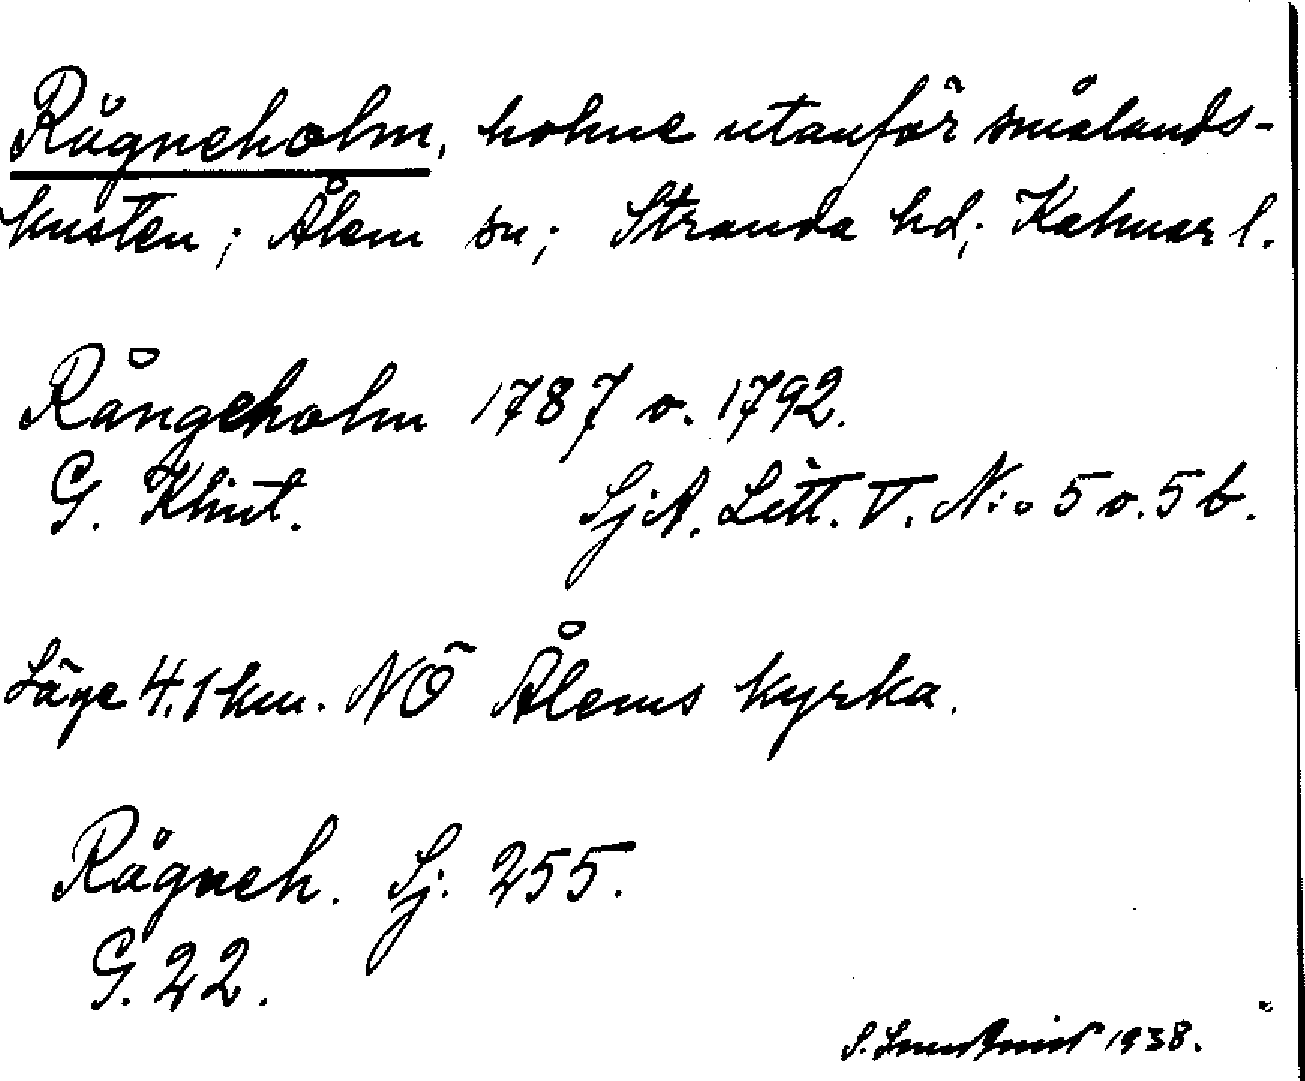 Rågneholm, holme utanför smålands-
kusten; Ålem sn; Stranda hd; Kalmar l.
Rångeholm 1787 o. 1792.
G. Klint. SjA. Litt. V. N:o 5 o. 5 b.
Läge 4,1 km. NÖ Ålems kyrka.
Rågneh. Sj. 255.
G. 22.
S. 1938.